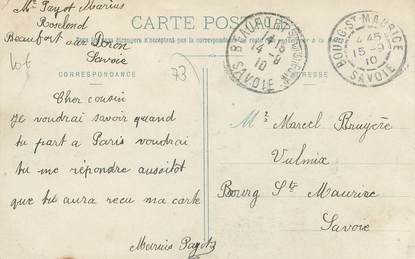 Mr Payot Marius
Roselend
Beaufort sur Doron
Savoie
CARTE POSTALE
73
CORRESPONDANCE
ADRESSE
BEAUFORT
14 -9
10
SAVOIE
BOURG-ST-MAURICE
4 45
15 -9
10
SAVOIE
Cher cousin
Je voudrai savoir quand
tu part a Paris voudrai
tu me répondre aussitôt
que tu aura recu ma carte
Marius Payot
Mr Marcel Bruyère
Vulmix
Bourg Ste Maurice
Savoie